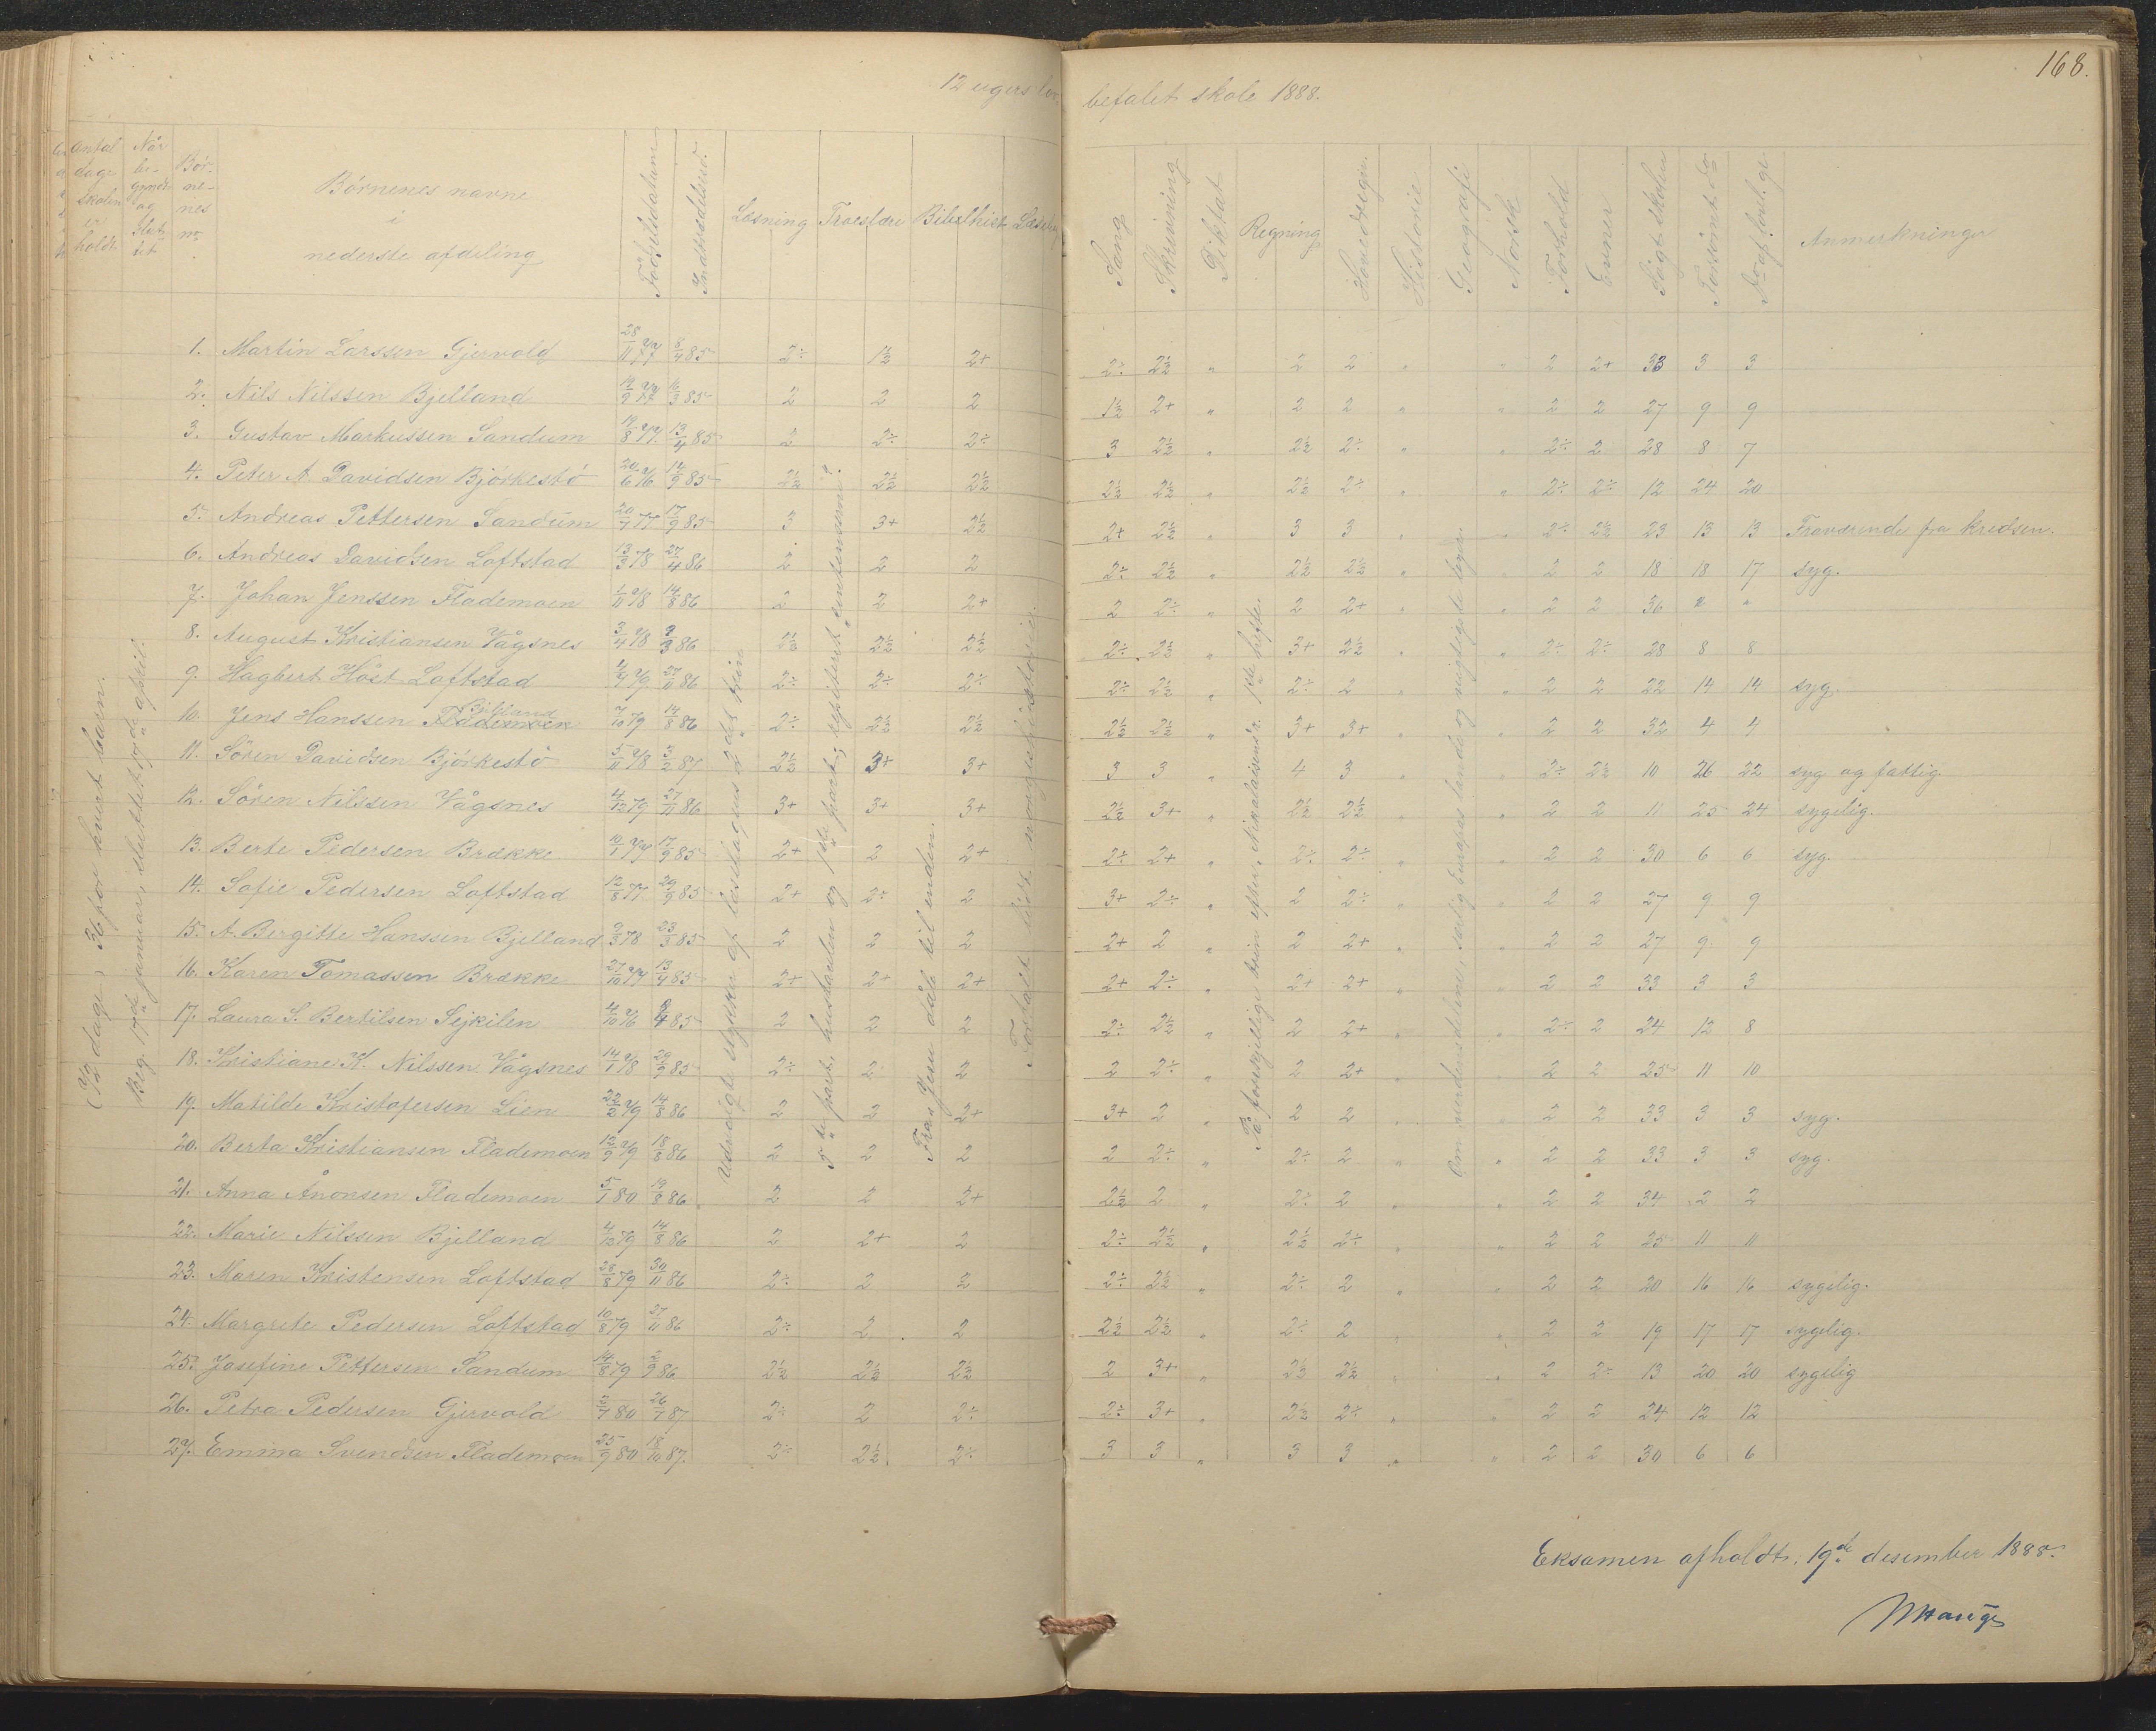 168.
12 ugers lov-
befalet skole 1888.
Antal dage skolen er holdt.
Når be-gyndt og slut-tet
Bør-ne-nes nr.
Børnenes navne i nederste afdeling
Fødselsdatum
Indtrædelsesd.
Læsning
Troeslære
Bibelhist.
Læsebog
Sang
Skrivning
Diktat
Regning
Hovedregn.
Historie
Geografi
Norsk
Forhold
Evner
Søgt skolen
Forsømt do
Do af lovl. gr.
Anmerkninger
(72 dage), 36 for hvert barn.
Beg. 17de januar, sluttet 17de april.
Udvalgte stykker af læsebogens 2det trin
5te part, hustavlen og 1ste part, repiterat
Fra Jesu dåb til enden.
Fortalt lidt norgeshistorie.
På forskjellige trin efter Nikolaisens r. 1ste hefte.
Om verdensdelene, særlig Europas lande og vigtigste byer.
1. Martin Larssen Gjervold 28/11 77 8/4 85 2÷ 1½ 2+ 2÷ 2½ " 2 2 " " 2 2+ 33 3 3
2. Nils Nilssen Bjelland 19/9 77 16/3 85 2 2 2 1½ 2+ " 2 2 " " 2 2 27 9 9
3. Gustav Markussen Sandum 19/8 77 13/4 85 2 2÷ 2÷ 3 2½ " 2½ 2÷ " " 2÷ 2 28 8 7
4. Peter A. Davidsen Bjørkestö 24/6 76 14/9 85 2½ 2½ 2½ 2½ 2½ " 2½ 2÷ " " 2÷ 2÷ 12 24 20
5. Andreas Pettersen Sandum 20/7 77 17/9 85 3 3+ 2½ 2+ 2½ " 3 3 " " 2÷ 2½ 23 13 13 Fraværende fra kredsen.
6. Andreas Davidsen Loftstad 13/3 78 27/4 86 2 2 2 2÷ 2½ " 2½ 2½ " " 2 2 18 18 17 syg.
7. Johan Jenssen Flademoen 1/11 78 14/8 86 2 2 2+ 2 2÷ " 2 2+ " " 2 2 36 " "
8. August Kristiansen Vågsnes 3/4 78 9/3 86 2½ 2½ 2½ 2÷ 2½ " 3+ 2½ " " 2÷ 2÷ 28 8 8
9. Hagbert Höst Loftstad 4/7 79 27/11 86 2÷ 2÷ 2÷ 2÷ 2½ " 2÷ 2 " " 2 2 22 14 14 syg.
Bjelland
10. Jens Hanssen Flademoen 7/10 79 14/8 86 2÷ 2½ 2½ 2½ 2½ " 3+ 3+ " " 2 2 32 4 4
11. Sören Davidsen Bjørkestö 5/11 78 3/2 87 2½ 3+ 3+ 3 3 " 4 3 " " 2÷ 2½ 10 26 22 syg og fattig.
12. Sören Nilssen Vågsnes 4/12 79 27/11 86 3+ 3+ 3+ 2½ 3+ " 2½ 2½ " " 2 2 11 25 24 sygelig.
13. Berte Pedersen Brække 10/1 77 17/9 85 2+ 2 2+ 2÷ 2+ " 2÷ 2÷ " " 2 2 30 6 6 syg.
14. Sofie Pedersen Loftstad 12/8 77 29/9 85 2+ 2÷ 2 3+ 2÷ " 2 2÷ " " 2 2 27 9 9
15. A. Bergitte Hanssen Bjelland 9/3 78 23/3 85 2 2 2 2+ 2 " 2 2+ " " 2 2 27 9 9
16. Karen Tomassen Brække 27/10 77 13/4 85 2+ 2+ 2+ 2+ 2÷ " 2+ 2+ " " 2 2 33 3 3
17. Laura S. Bertilsen Sejkilen 4/10 76 8/4 85 2 2 2 2÷ 2½ " 2 2+ " " 2÷ 2 24 12 8
18. Kristiane K. Nilssen Vågsnes 14/1 78 29/9 85 2÷ 2 2 2 2÷ " 2 2+ " " 2 2 25 11 10
19. Matilde Kristofersen Lien 22/2 79 14/8 86 2 2 2+ 3+ 2 " 2 2 " " 2 2 33 3 3 syg.
20. Berta Kristiansen Flademoen 12/9 79 18/8 86 2 2 2 2 2÷ " 2÷ 2 " " 2 2 33 3 3 syg.
21. Anna Ånonsen Flademoen 5/1 80 19/8 86 2 2 2+ 2½ 2 " 2÷ 2 " " 2 2 34 2 2
22. Marie Nilssen Bjelland 4/12 79 14/8 86 2 2+ 2 2÷ 2½ " 2½ 2÷ " " 2 2 25 11 11
23. Maren Kristensen Loftstad 28/8 79 30/11 86 2÷ 2 2 2÷ 2½ " 2÷ 2 " " 2 2 20 16 16 sygelig.
24. Margrete Pedersen Loftstad 10/8 79 27/11 86 2÷ 2 2 2½ 2½ " 2÷ 2 " " 2 2 19 17 17 sygelig.
25. Josefine Pettersen Sandum 14/8 79 2/9 86 2½ 2½ 2½ 2 3+ " 2½ 2½ " " 2 2÷ 13 20 20 sygelig
26. Petra Pedersen Gjervold 2/7 80 26/7 87 2÷ 2 2÷ 2÷ 3+ " 2½ 2÷ " " 2 2 24 12 12
27. Emma Svendsen Flademoen 25/9 80 18/10 87. 2÷ 2½ 2÷ 3 3 " 3 3 " " 2 2 30 6 6
Eksamen afholdt 19de desember 1888.
Hauge